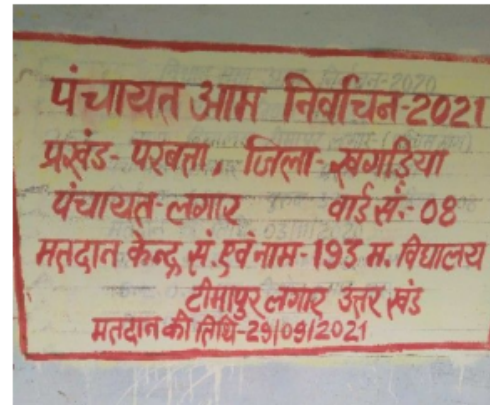 पंचायत आम निर्वाचन-2021
प्रखंड- परबत्ता, जिला-खगड़िया
पंचायत-लगार वार्ड सं.-08
मतदान केन्द्र सं. एवं नाम-193 म. विद्यालय
टीमापुर लगार उत्तर खंड
मतदान की तिथि-29/09/2021